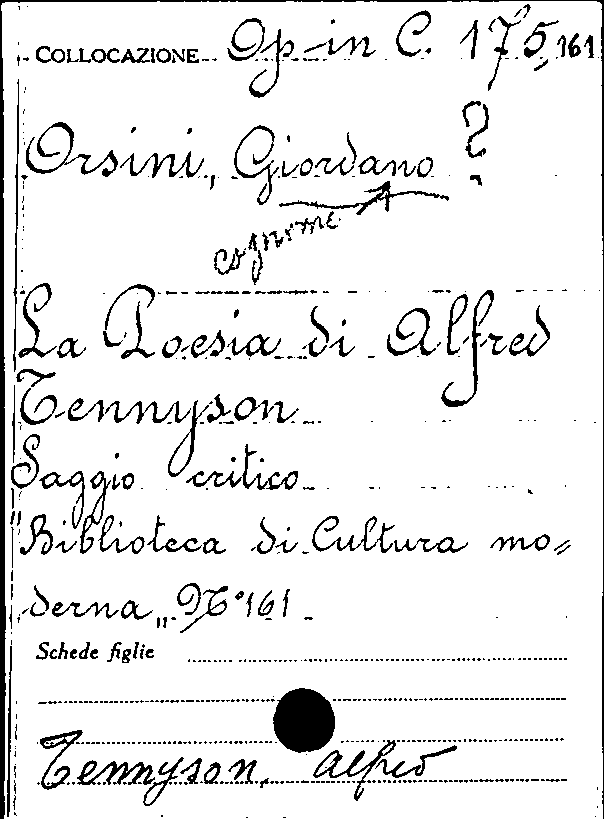 COLLOCAZIONE Op in C. 175,161
Orsini, Giordano ?
cognome
La Poesia di Alfred
Tennyson
Saggio critico
"Biblioteca di Cultura mo=
derna„ N° 161
Schede figlie
Tennyson, Alfred